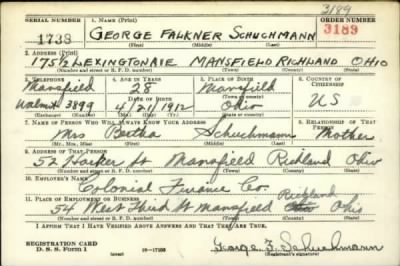 3189
SERIAL NUMBER 1. NAME (Print) ORDER NUMBER
1738 GEORGE FALKNER SCHUCHMANN 3189
(First) (Middle) (Last)
2. ADDRESS (Print)
175½ LEXINGTON AVE MANSFIELD RICHLAND OHIO
(Number and street or R. F. D. number) (Town) (County) (State)
3. TELEPHONE 4. AGE IN YEARS 5. PLACE OF BIRTH 6. COUNTRY OF CITIZENSHIP
Mansfield 28 Mansfield
DATE OF BIRTH
Walnut 3899 4/21/1912 Ohio U S
(Exchange) (Number) (Mo.) (Day) (Yr.) (State or country)
7. NAME OF PERSON WHO WILL ALWAYS KNOW YOUR ADDRESS 8. RELATIONSHIP OF THAT PERSON
Mrs Bertha Schuchmann Mother
(Mr., Mrs., Miss) (First) (Middle) (Last)
9. ADDRESS OF THAT PERSON
52 Harker St Mansfield Richland Ohio
(Number and street or R. F. D. number) (Town) (County) (State)
10. EMPLOYER'S NAME
Colonial Finance Co.
11. PLACE OF EMPLOYMENT OR BUSINESS
54 West Third St Mansfield Richland Ohio
(Number and street or R. F. D. number) (Town) (County) (State)
I AFFIRM THAT I HAVE VERIFIED ABOVE ANSWERS AND THAT THEY ARE TRUE.
REGISTRATION CARD
D. S. S. Form 1 16—17105 George F. Schuchmann
(Registrant's signature)